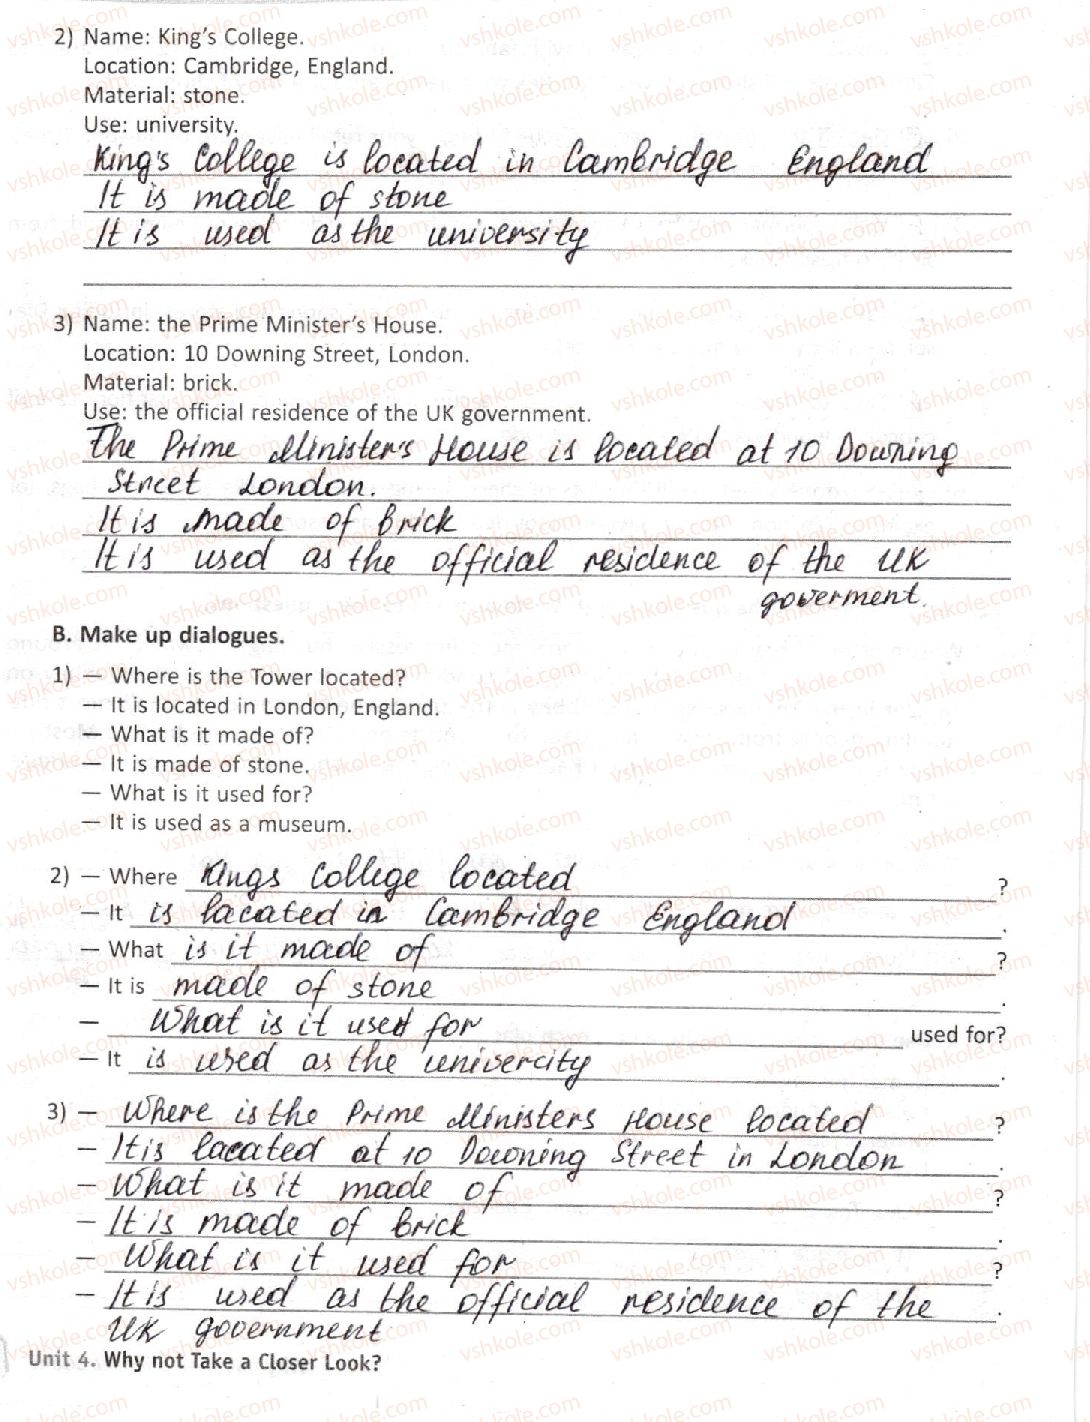 2) Name: King's College.
Location: Cambridge, England.
Material: stone.
Use: university.
King's College is located in Cambridge England
It is made of stone
It is used as the university
3) Name: the Prime Minister's House.
Location: 10 Downing Street, London.
Material: brick.
Use: the official residence of the UK government.
The Prime Minister's House is located at 10 Downing
Street London.
It is made of brick
It is used as the official residence of the UK
goverment.
B. Make up dialogues.
1) — Where is the Tower located?
— It is located in London, England.
— What is it made of?
— It is made of stone.
— What is it used for?
— It is used as a museum.
2) — Where Kings College located ?
— It is lacated in Cambridge England .
— What is it made of ?
— It is made of stone .
— What is it used for used for?
— It is used as the univercity .
3) — Where is the Prime Ministers House located ?
— It is lacated at 10 Downing Street in London .
— What is it made of ?
— It is made of brick .
— What is it used for ?
— It is used as the official residence of the .
UK government
Unit 4. Why not Take a Closer Look?
vshkole.com